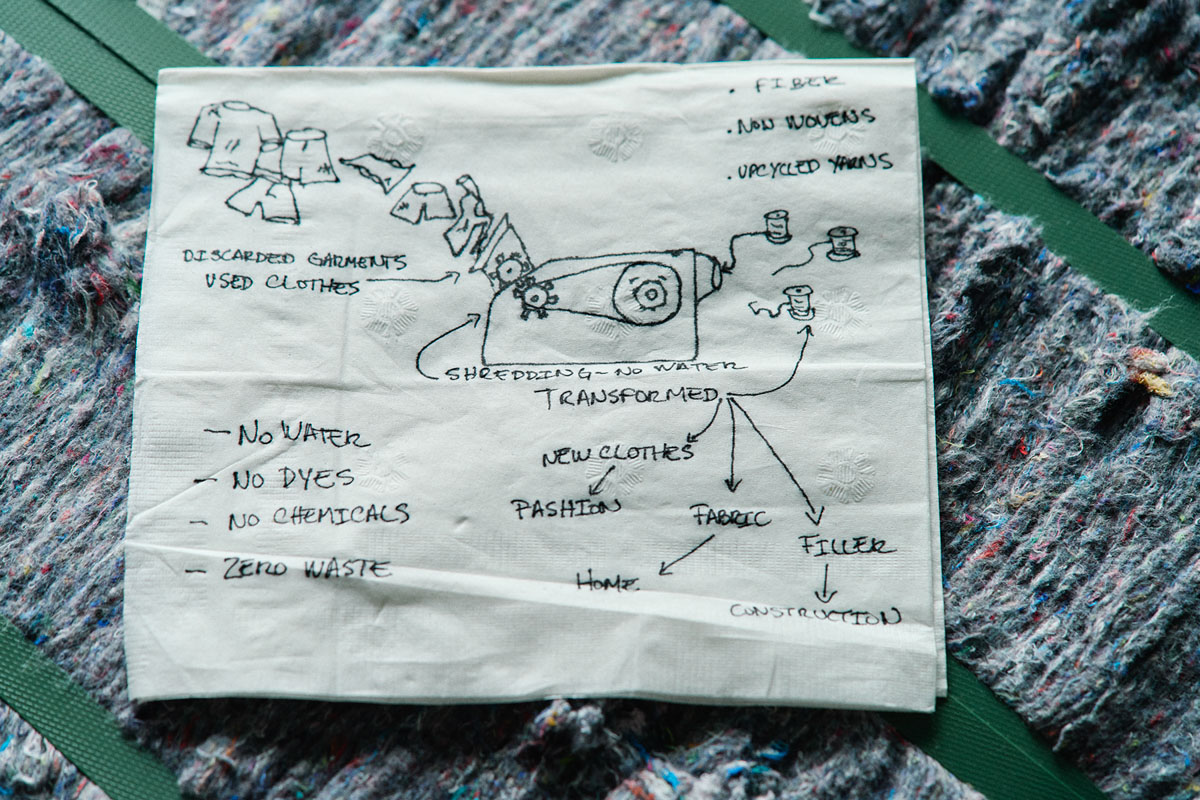 • FIBER
• NON WOVENS
• UPCYCLED YARNS
DISCARDED GARMENTS
USED CLOTHES
SHREDDING - NO WATER
TRANSFORMED
- NO WATER
- NO DYES
- NO CHEMICALS
- ZERO WASTE
NEW CLOTHES
FASHION
FABRIC
HOME
FILLER
CONSTRUCTION